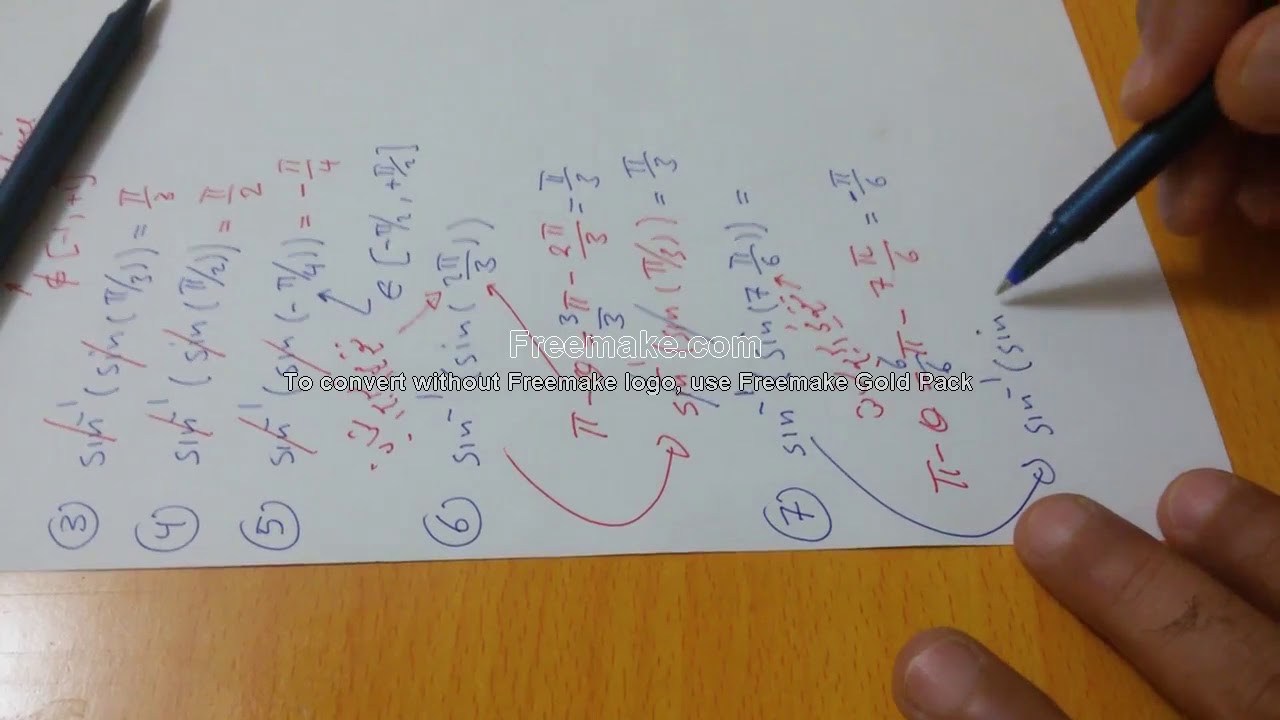 ∉ [-1, +1]
③ sin⁻¹ (sin (π/3)) = π/3
④ sin⁻¹ (sin (π/2)) = π/2
⑤ sin⁻¹ (sin (-π/4)) = -π/4
∈ [-π/2, +π/2]
⑥ sin⁻¹ (sin (2π/3))
π - θ = 3π/3 - 2π/3 = π/3
sin⁻¹ (sin (π/3)) = π/3
⑦ sin⁻¹ (sin (7 π/6)) =
π - θ = 6π/6 - 7π/6 = -π/6
sin⁻¹ (sin
Freemake.com
To convert without Freemake logo, use Freemake Gold Pack